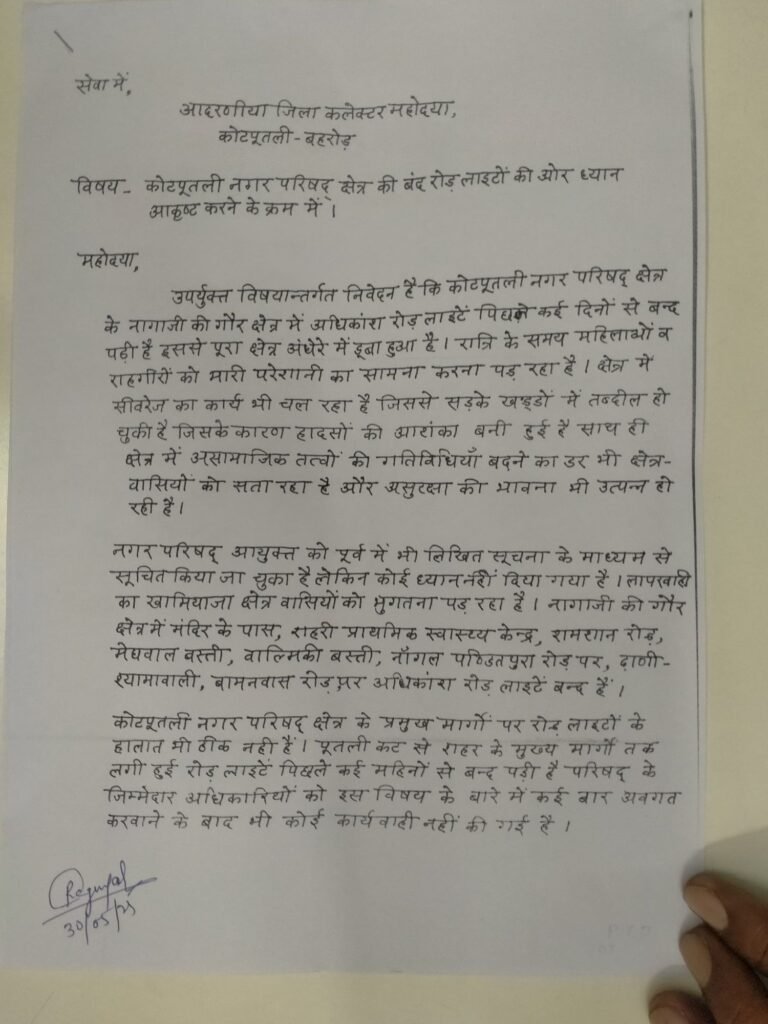 सेवा में,
आदरणीया जिला कलेक्टर महोदया,
कोटपूतली-बहरोड़
विषय- कोटपूतली नगर परिषद् क्षेत्र की बंद रोड़ लाइटों की ओर ध्यान
आकृष्ट करने के क्रम में ।
महोदया,
उपर्युक्त विषयान्तर्गत निवेदन है कि कोटपूतली नगर परिषद् क्षेत्र
के नागाजी की गौर क्षेत्र में अधिकांश रोड़ लाइटें पिछले कई दिनों से बन्द
पड़ी है इससे पूरा क्षेत्र अंधेरे में डूबा हुआ है । रात्रि के समय महिलाओं व
राहगीरों को भारी परेशानी का सामना करना पड़ रहा है । क्षेत्र में
सीवरेज का कार्य भी चल रहा है जिससे सड़के खड्डों में तब्दील हो
चुकी है जिसके कारण हादसों की आशंका बनी हुई है साथ ही
क्षेत्र में असामाजिक तत्वों की गतिविधियाँ बढ़ने का डर भी क्षेत्र-
वासियों को सता रहा है और असुरक्षा की भावना भी उत्पन्न हो
रही है ।
नगर परिषद् आयुक्त को पूर्व में भी लिखित सूचना के माध्यम से
सूचित किया जा चुका है लेकिन कोई ध्यान नहीं दिया गया है । लापरवाही
का खामियाजा क्षेत्र वासियों को भुगतना पड़ रहा है । नागाजी की गौर
क्षेत्र में मंदिर के पास, शहरी प्राथमिक स्वास्थ्य केन्द्र, शमशान रोड़,
मेघवाल बस्ती, वाल्मिकी बस्ती, नाँगल पण्डितपुरा रोड़ पर, ढ़ाणी-
श्यामावाली, बामनवास रोड़ पर अधिकांश रोड़ लाइटें बन्द हैं ।
कोटपूतली नगर परिषद् क्षेत्र के प्रमुख मार्गो पर रोड़ लाइटों के
हालात भी ठीक नही हैं । पूतली कट से शहर के मुख्य मार्गो तक
लगी हुई रोड़ लाइटें पिछले कई महिनों से बन्द पड़ी है परिषद् के
जिम्मेदार अधिकारियों को इस विषय के बारे में कई बार अवगत
करवाने के बाद भी कोई कार्यवाही नहीं की गई है ।
30/05/25